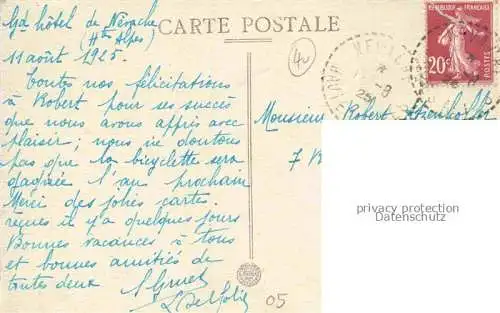 Gd hôtel de Névache
(Htes Alpes)
11 août 1925.
Toutes nos félicitations
à Robert pour ses succès
que nous avons appris avec
plaisir ; nous ne doutons
pas que la bicyclette sera
gagnée l'an prochain
Merci des jolies cartes
reçues il y a quelques jours
Bonnes vacances à tous
et bonnes amitiés de
toutes deux.
CARTE POSTALE
REPUBLIQUE FRANÇAISE
20c
POSTES
Monsieur Robert
7
privacy protected
Datenschutz
05